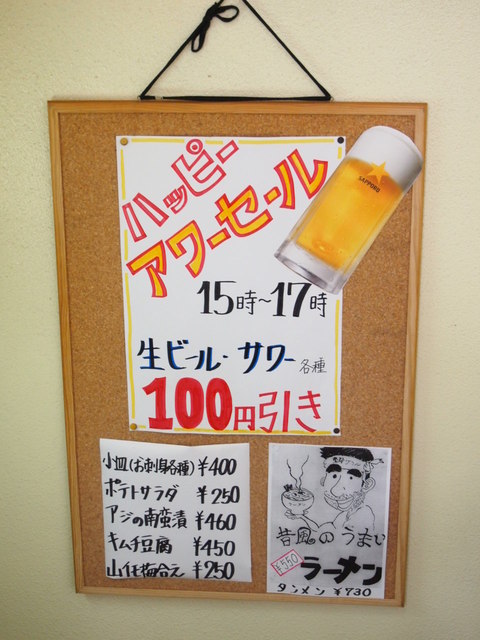 ハッピー
アワーセール
SAPPORO
15時〜17時
生ビール・サワー各種
100円引き
小皿(お刺身各種) ¥400
ポテトサラダ ¥250
アジの南蛮漬 ¥460
キムチ豆腐 ¥450
山仕梅合え ¥250
ラーメン
昔風のうまい
¥550
ラーメン
タンメン ¥730